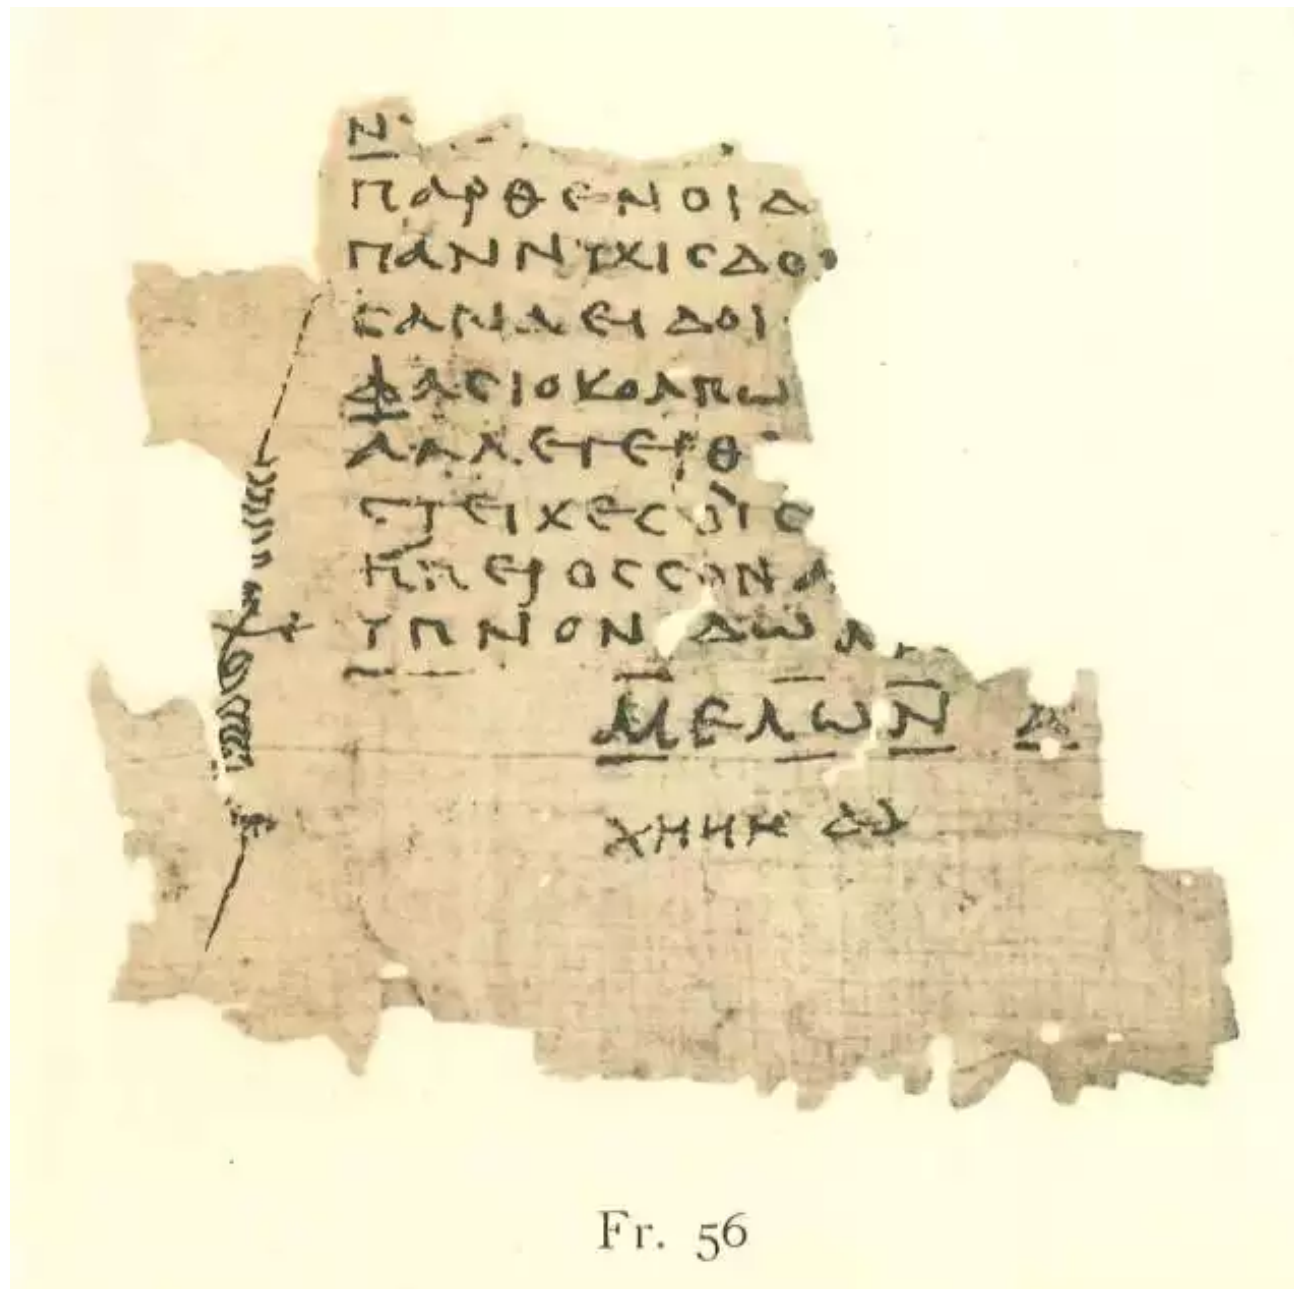 Ν
ΠΑΡΘΕΝΟΙΔ
ΠΑΝΝΥΧΙСΔΟ
СΑΝΑΕΙΔΟΙ
ΦΑСΙΟΚΟΛΠΩ
ΑΛΛΕΓΕΡΘ
СΤΕΙΧΕСΟΙС
ΗΠΕΡΟССΟΝΑ
ΥΠΝΟΝ ΔΩ
ΜΕΛΩΝ Α
ΧΗΗΗ ΔΔ
Fr. 56